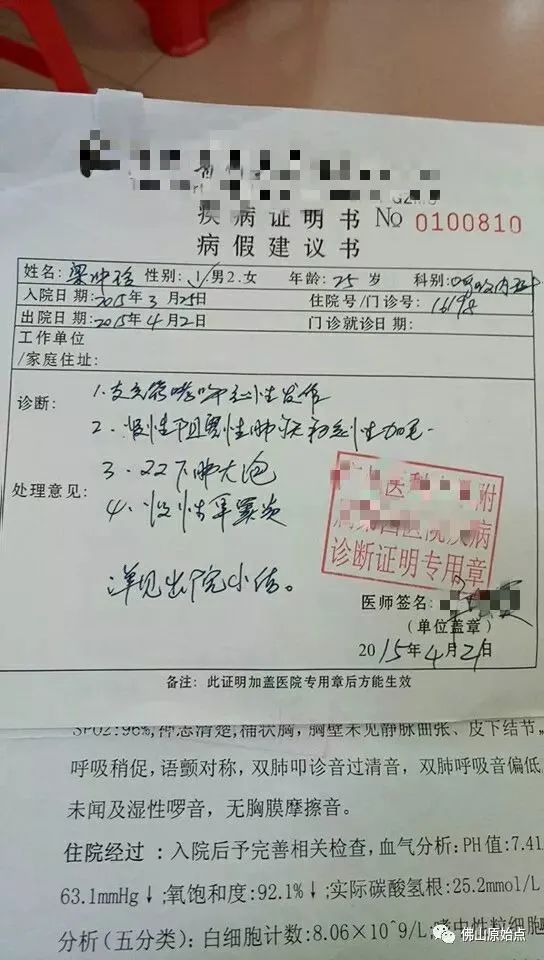 疾病证明书 No 0100810
病假建议书
姓名: 梁冲玲 性别: 1.男2.女 年龄: 25 岁 科别: 呼吸内科
入院日期: 2015年3月25日 住院号/门诊号:
出院日期: 2015年4月2日 门诊就诊日期:
工作单位
/家庭住址:
诊断: 1.支气管哮喘急性发作
2.慢性阻塞性肺疾病急性加重
3.双下肺大泡
处理意见: 4.慢性鼻窦炎
医 附
医院疾病
诊断证明专用章
详见出院小结。
医师签名:
(单位盖章)
2015年4月2日
备注: 此证明加盖医院专用章后方能生效
SPO2:96%,神志清楚,桶状胸,胸壁未见静脉曲张、皮下结节。
呼吸稍促,语颤对称,双肺叩诊音过清音,双肺呼吸音偏低
未闻及湿性啰音,无胸膜摩擦音。
住院经过:入院后予完善相关检查,血气分析:PH值:7.41
63.1mmHg↓;氧饱和度:92.1%↓;实际碳酸氢根:25.2mmol/L
分析(五分类):白细胞计数:8.06×10^9/L;嗜中性粒细胞
佛山原始点